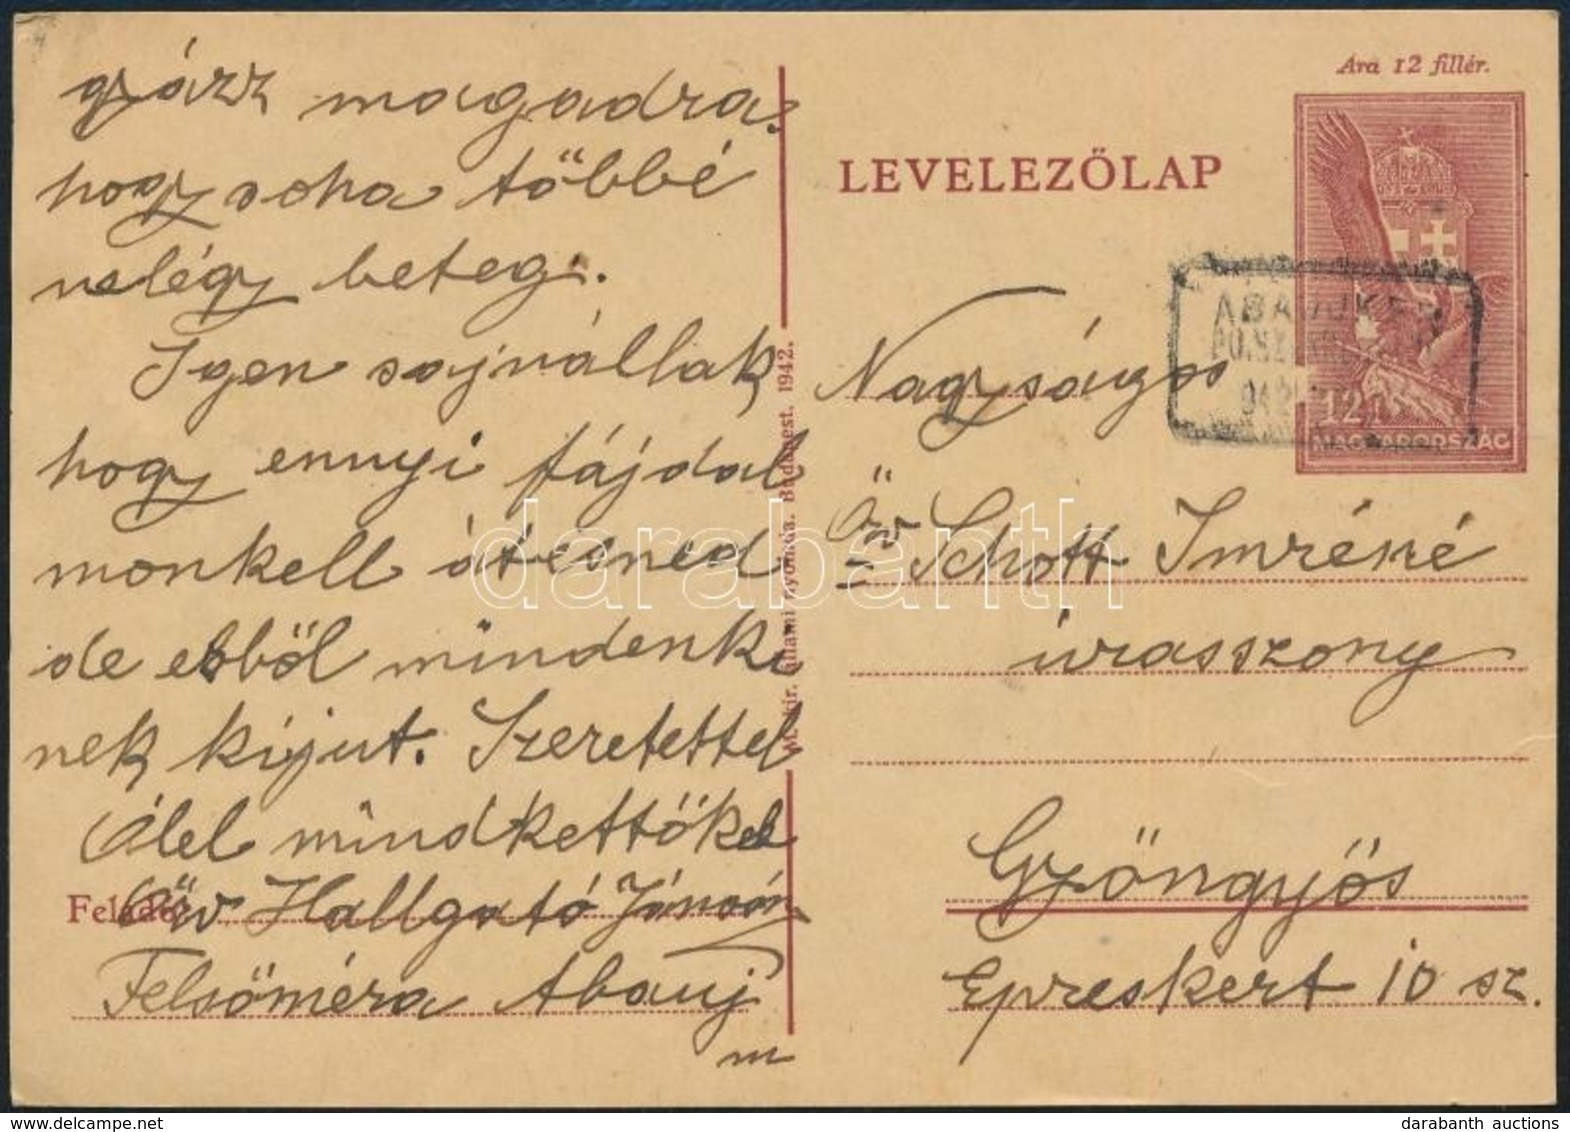 gyázz magadra.
hogy soha többé
nelégy beteg.
Igen sajnállak
hogy ennyi fájdal
monkell átesned
de ebből mindenki
nek kijut. Szeretettel
Ölel mindkettőket
Feladó: Özv Hallgató Jánosné
Felsőméra Abauj
m
M. kir. állami nyomda. Budapest. 1942.
Ára 12 fillér.
LEVELEZŐLAP
ABAUJKÉR
12
MAGYARORSZÁG
Nagyságos
Özv Schott Imréné
úrasszony
Gyöngyös
Epreskert 10 sz.
darabanth
darabanth auctions